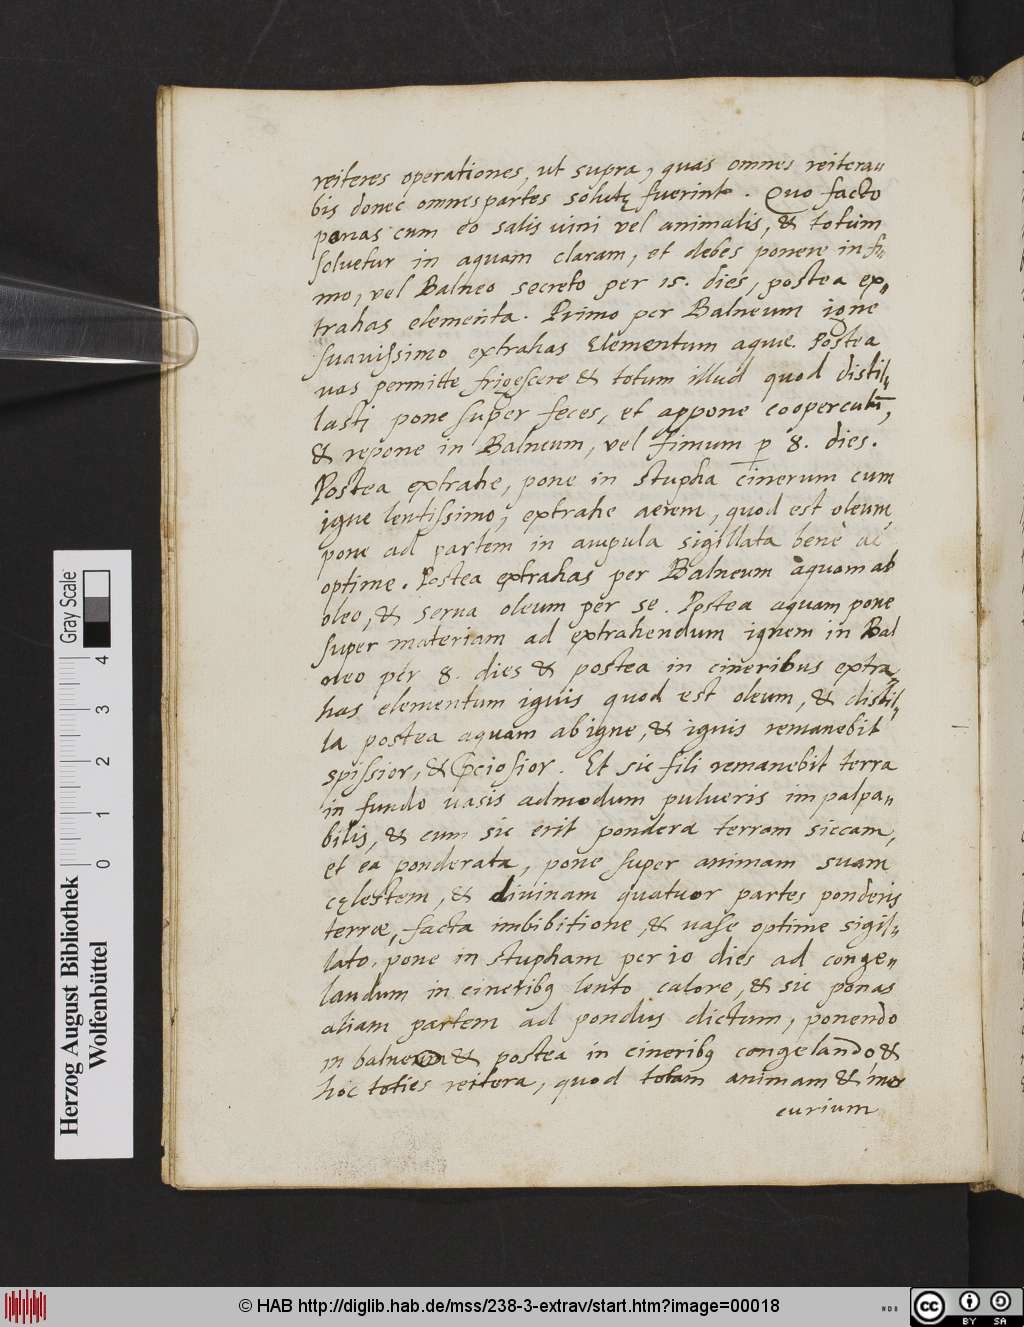 reiteres operationes, ut supra, quas omnes reitera=
bis donec omnes partes solutę fuerint. Quo facto
ponas cum eo salis vini vel animalis, & totum
solvetur in aquam claram, et debes ponere in fi=
mo, vel Balneo secreto per 15. dies, postea ex=
trahas elementa. Primo per Balneum igne
suavissimo extrahas Elementum aque. Postea
vas permitte frigescere & totum illud quod distil=
lasti pone super feces, et appone cooperculũ,
& repone in Balneum, vel fimum p 8. dies.
Postea extrahe, pone in stupha cinerum cum
igne lentissimo, extrahe aerem, quod est oleum,
pone ad partem in ampula sigillata bene ac
optime. Postea extrahas per Balneum aquam ab
oleo, & serva oleum per se. Postea aquam pone
super materiam ad extrahendum ignem in Bal
neo per 8. dies & postea in cineribus extra=
has elementum ignis quod est oleum, & distil=
la postea aquam ab igne, & ignis remanebit
spissior, & p̄ciosior. Et sic fili remanebit terra
in fundo vasis admodum pulveris impalpa=
bilis, & cum sic erit pondera terram siccam,
et ea ponderata, pone super animam suam
cęlestem, & divinam quatuor partes ponderis
terræ, facta imbibitione, & vase optime sigil=
lato, pone in stupham per 10 dies ad conge=
landum in cineribꝫ lento calore, & sic ponas
aliam partem ad pondus dictum, ponendo
in balneum & postea in cineribꝫ congelando, &
hoc toties reitera, quod totam animam & mer
curium
Herzog August Bibliothek
Wolfenbüttel
0 1 2 3 4
Gray Scale
© HAB http://diglib.hab.de/mss/238-3-extrav/start.htm?image=00018
NDB
cc
BY SA